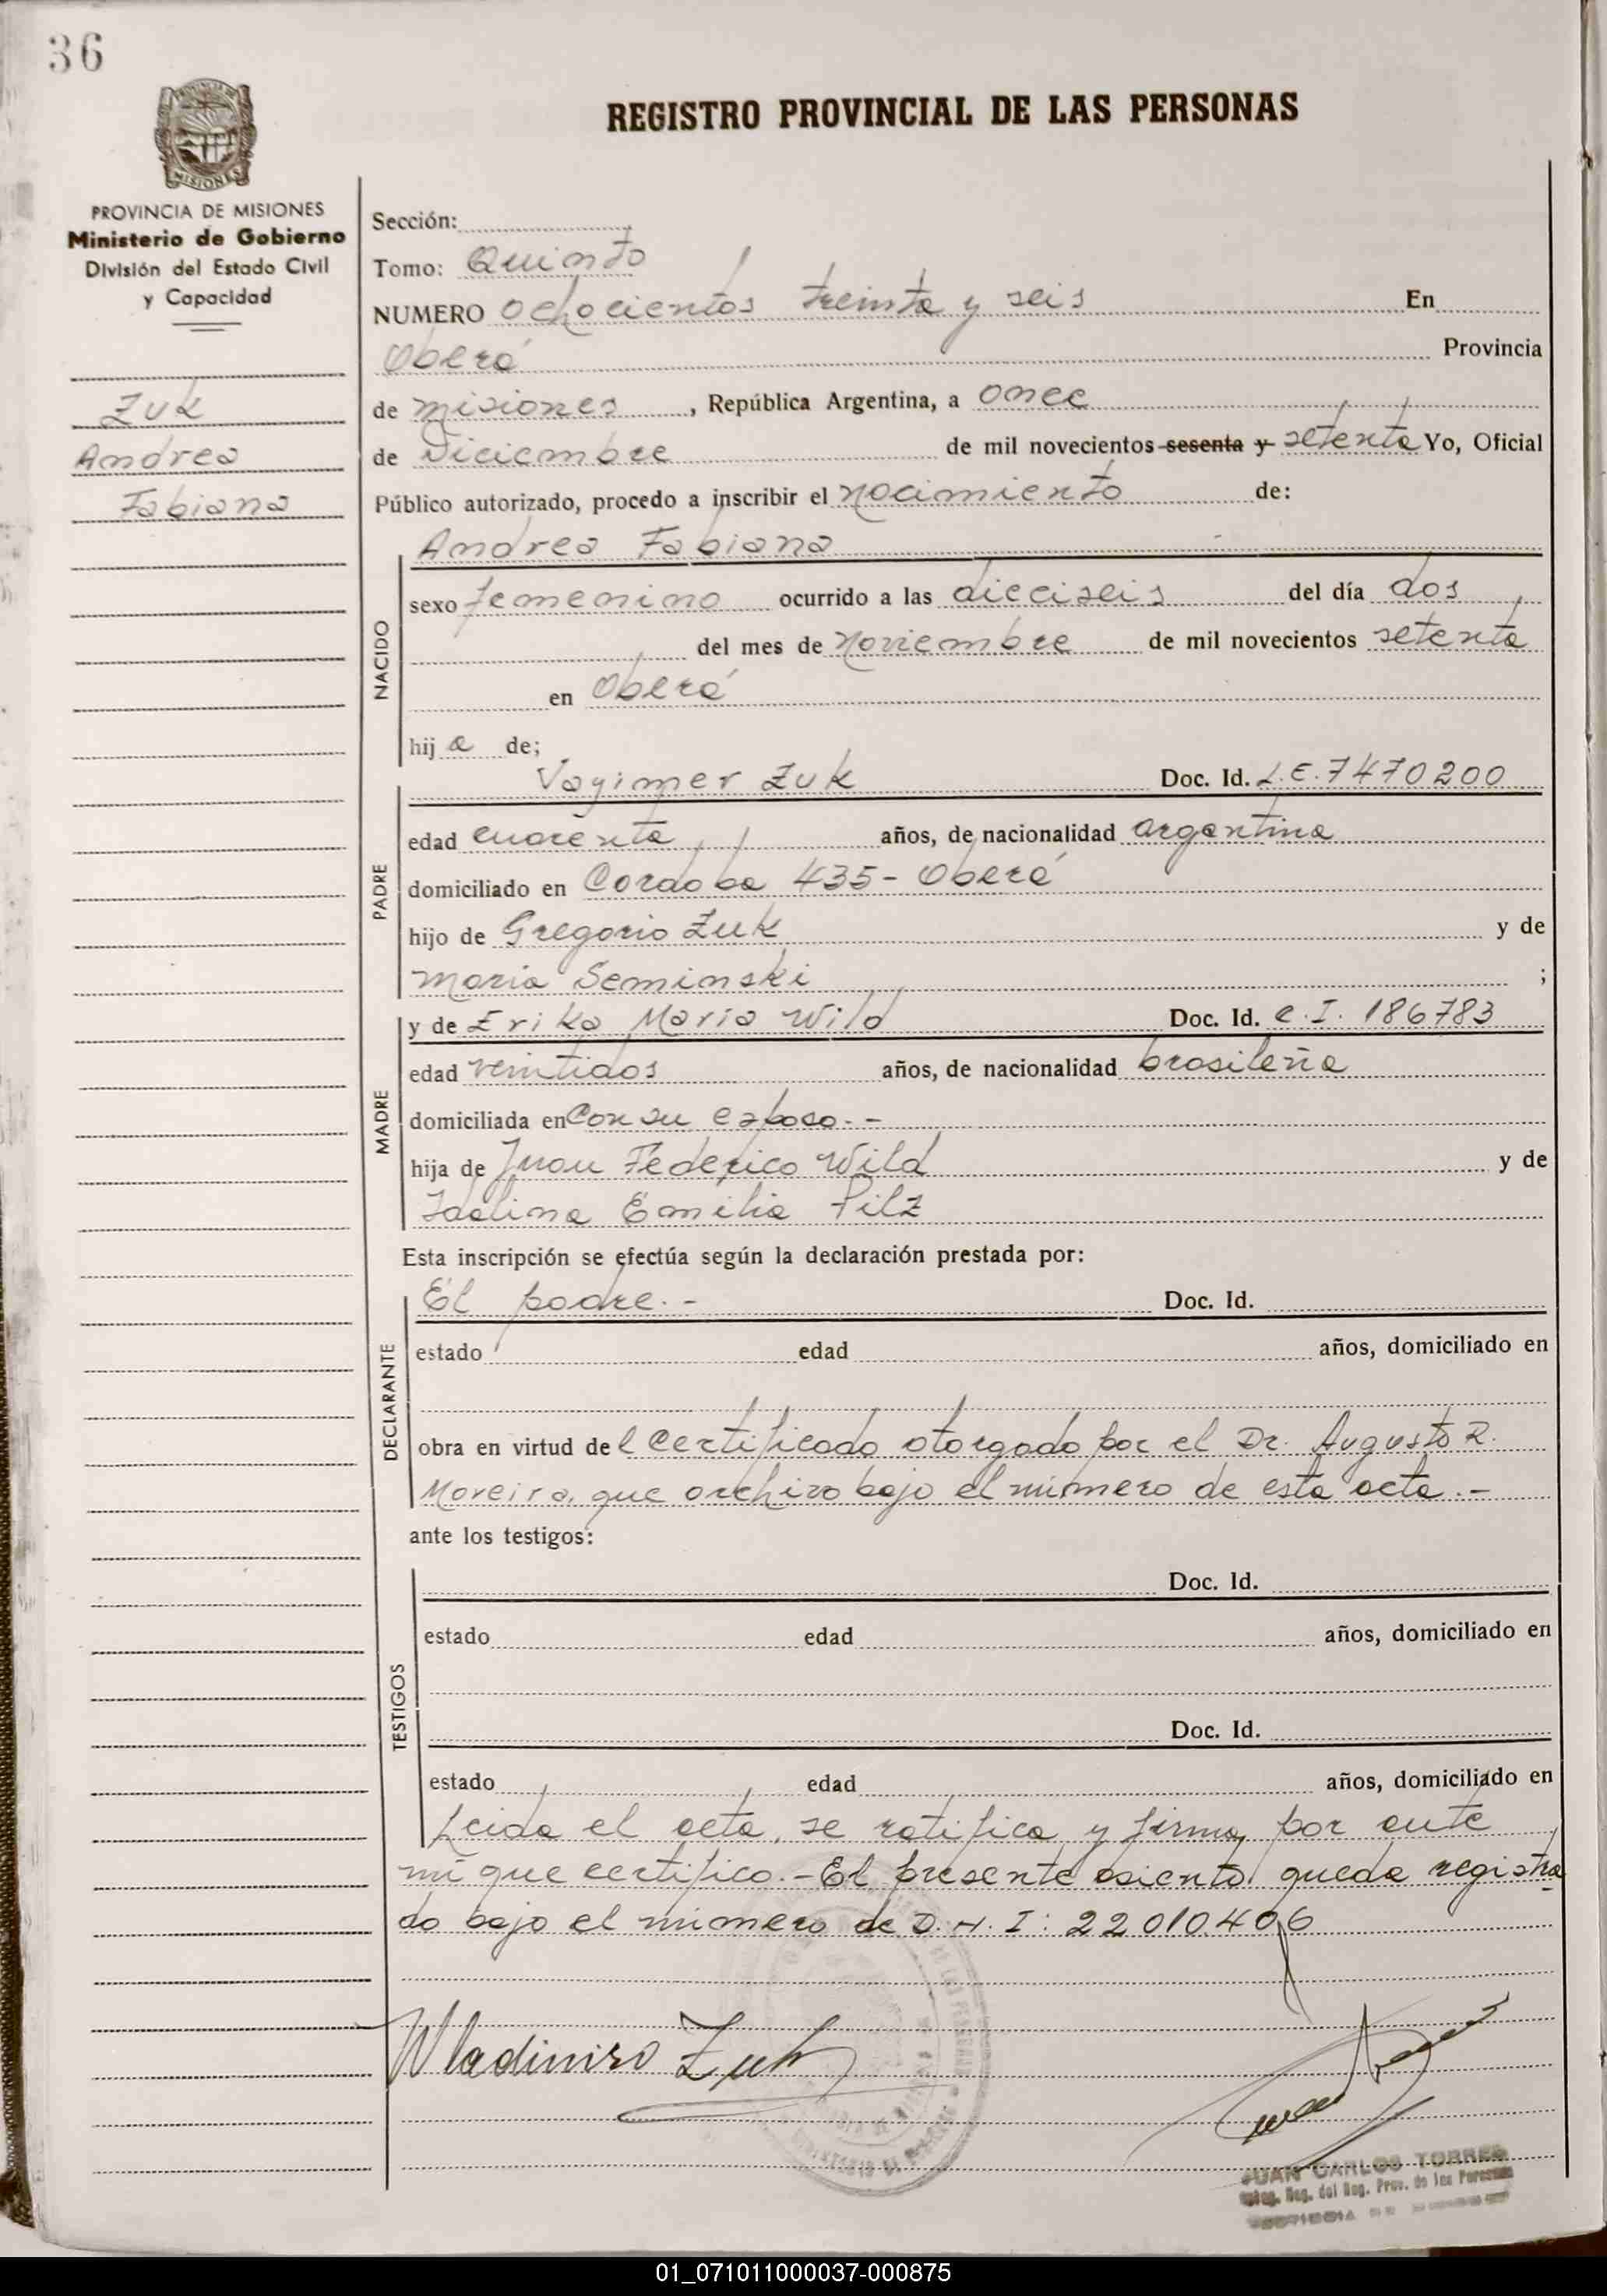 36
REGISTRO PROVINCIAL DE LAS PERSONAS
MISIONES
PROVINCIA DE MISIONES
Ministerio de Gobierno
División del Estado Civil
y Capacidad
Zuk
Andrea
Fabiana
Sección:
Tomo: Quinto
NUMERO Ochocientos treinta y seis En
Oberá Provincia
de Misiones, República Argentina, a once
de Diciembre de mil novecientos sesenta y setenta Yo, Oficial
Público autorizado, procedo a inscribir el nacimiento de:
Andrea Fabiana
NACIDO
sexo femenino ocurrido a las dieciseis del día dos
del mes de Noviembre de mil novecientos setenta
en Oberá
hija de;
PADRE
Vayimer Zuk Doc. Id. L.E. 7470200
edad cuarenta años, de nacionalidad argentina
domiciliado en Cordoba 435 - Oberá
hijo de Gregorio Zuk y de
Maria Seminski ;
MADRE
y de Erika Maria Wild Doc. Id. C.I. 186783
edad veintidos años, de nacionalidad brasileña
domiciliada en con su esposo.-
hija de Juan Federico Wild y de
Idalina Emilia Pilz
Esta inscripción se efectúa según la declaración prestada por:
DECLARANTE
El padre.- Doc. Id.
estado edad años, domiciliado en
obra en virtud del certificado otorgado por el Dr. Augusto R.
Moreira, que archivo bajo el número de esta acta.-
ante los testigos:
TESTIGOS
Doc. Id.
estado edad años, domiciliado en
Doc. Id.
estado edad años, domiciliado en
Leida el acta, se ratifica y firma, por ante
mi que certifico.- El presente asiento queda registra
do bajo el número de D.N.I: 22.010.406
Wladimiro Zuk
JUAN CARLOS TORRES
Reg. del Reg. Prov. de las Personas
01_071011000037-000875